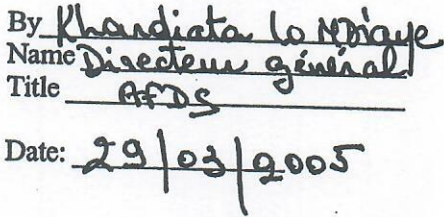 By Khandiata lo NDiaye
Name Directeur général
Title AFDS
Date: 29/03/2005